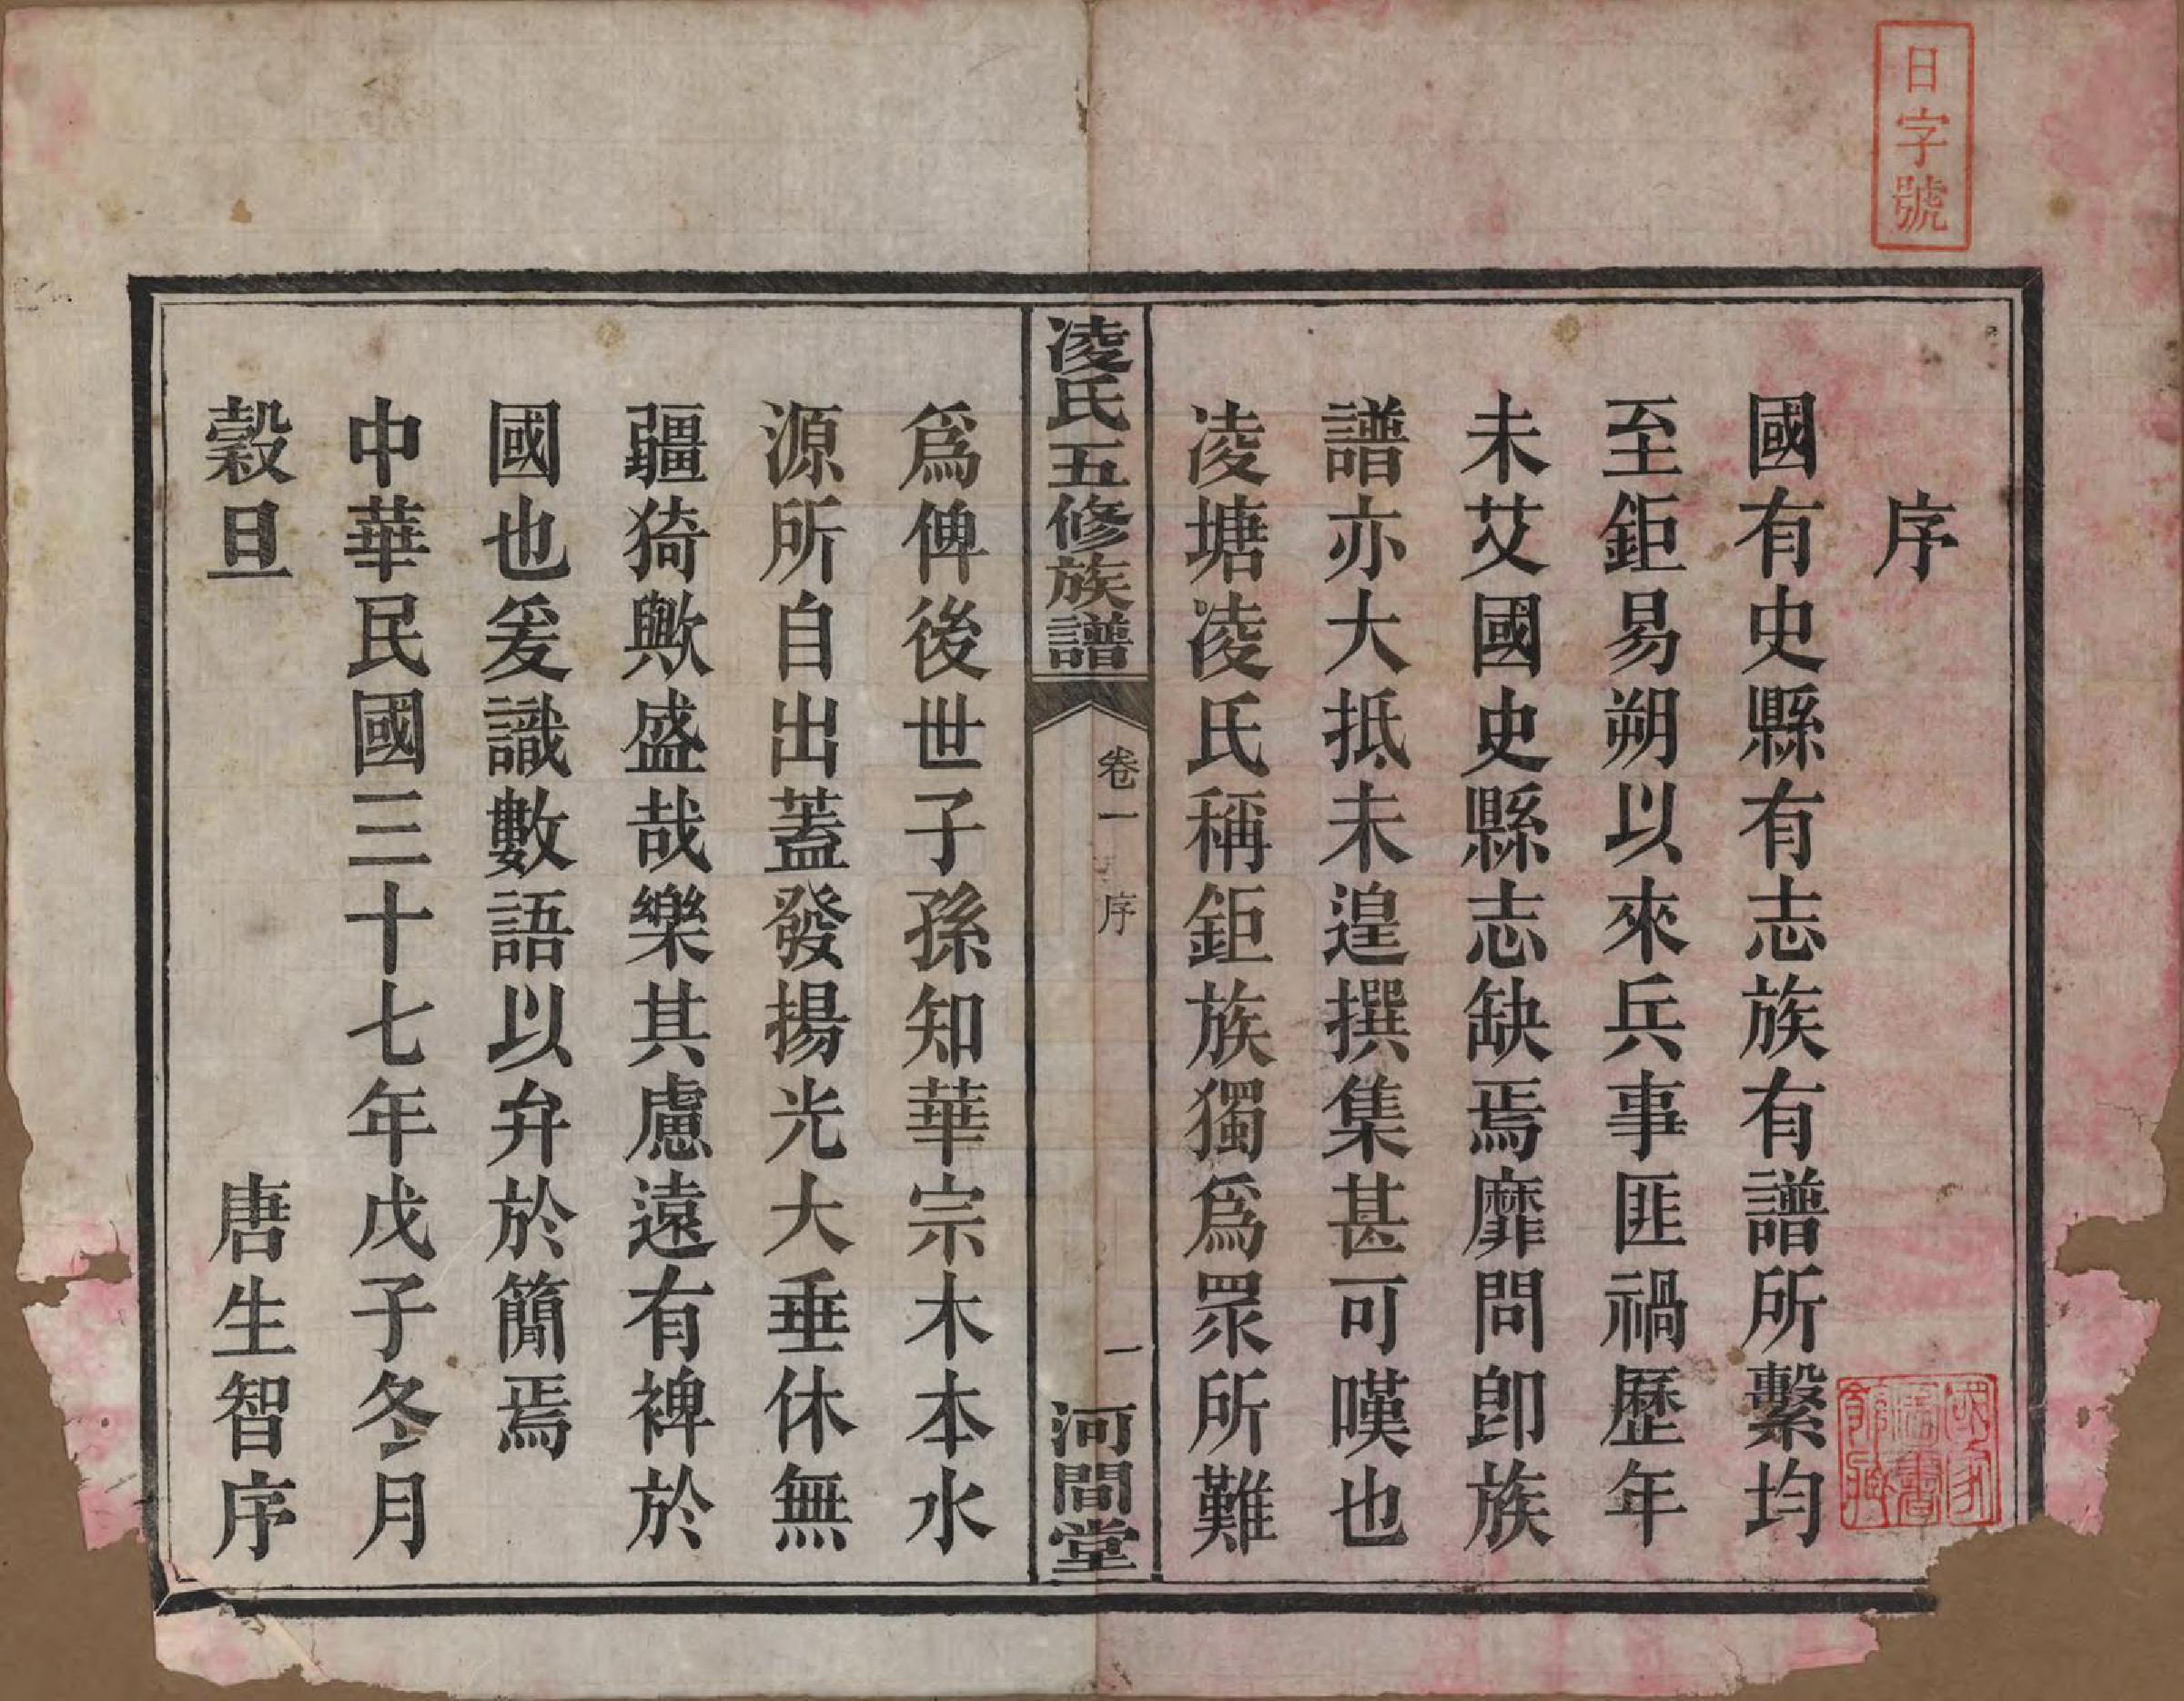 日字號
序
國有史縣有志族有譜所繫均
至鉅易朔以來兵事匪禍歷年
未艾國史縣志缺焉靡問卽族
譜亦大抵未遑撰集甚可嘆也
凌塘凌氏稱鉅族獨爲眾所難
凌氏五修族譜
卷一
序
一
河間堂
爲俾後世子孫知華宗木本水
源所自出蓋發揚光大垂休無
疆猗歟盛哉樂其慮遠有裨於
國也爰識數語以弁於簡焉
中華民國三十七年戊子冬月
穀旦
唐生智序